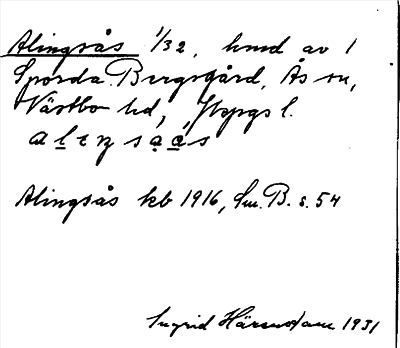 Alingsås 1/32, hmd av 1
Sporda Bergsgård, Ås sn,
Västbo hd, Jkpgs l.
alɩŋsa̠a̠s
Alingsås kb 1916, Sm. B. s. 54
Ingrid Härenstam 1931